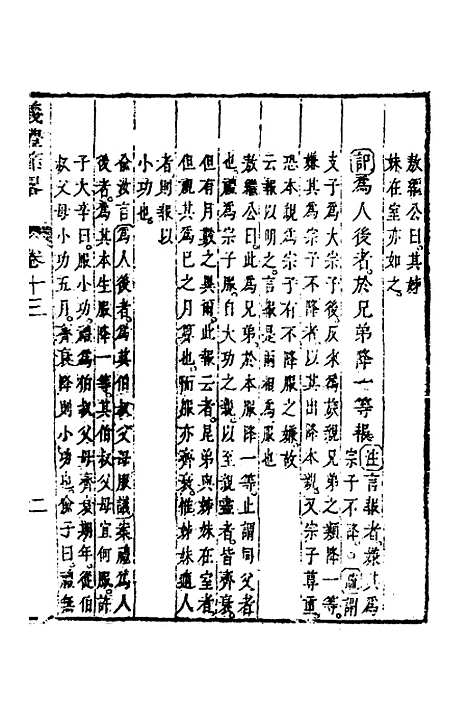 敖繼公曰。其姊
妹在室亦如之。
記爲人後者。於兄弟降一等報注言報者。嫌其爲
宗子不降。疏謂
支子爲大宗子後。反來爲族親兄弟之類降一等。
嫌其爲宗子不降者。以其出降本親。又宗子尊重。
恐本親爲宗子有不降服之嫌。故
云報以明之。言報是兩相爲服也
敖繼公曰。此爲兄弟於本服降一等。止謂同父者
也。禮。爲宗子服。自大功之親。以至親盡者。皆齊衰。
但有月數之異爾。此報云者。昆弟與姊妹在室者
但視其爲已之月算也。而服亦齊衰。惟姊妹適人
者則報以
小功也。
俞汝言爲人後者。爲其伯叔父母服議。案禮。爲人
後者。爲其本生服降一等。其伯叔父母宜何服。許
子大辛曰。服小功。禮。爲伯叔父母齊衰期年。從伯
叔父母小功五月。齊衰降則小功也。俞子曰。禮無
卷十三
二